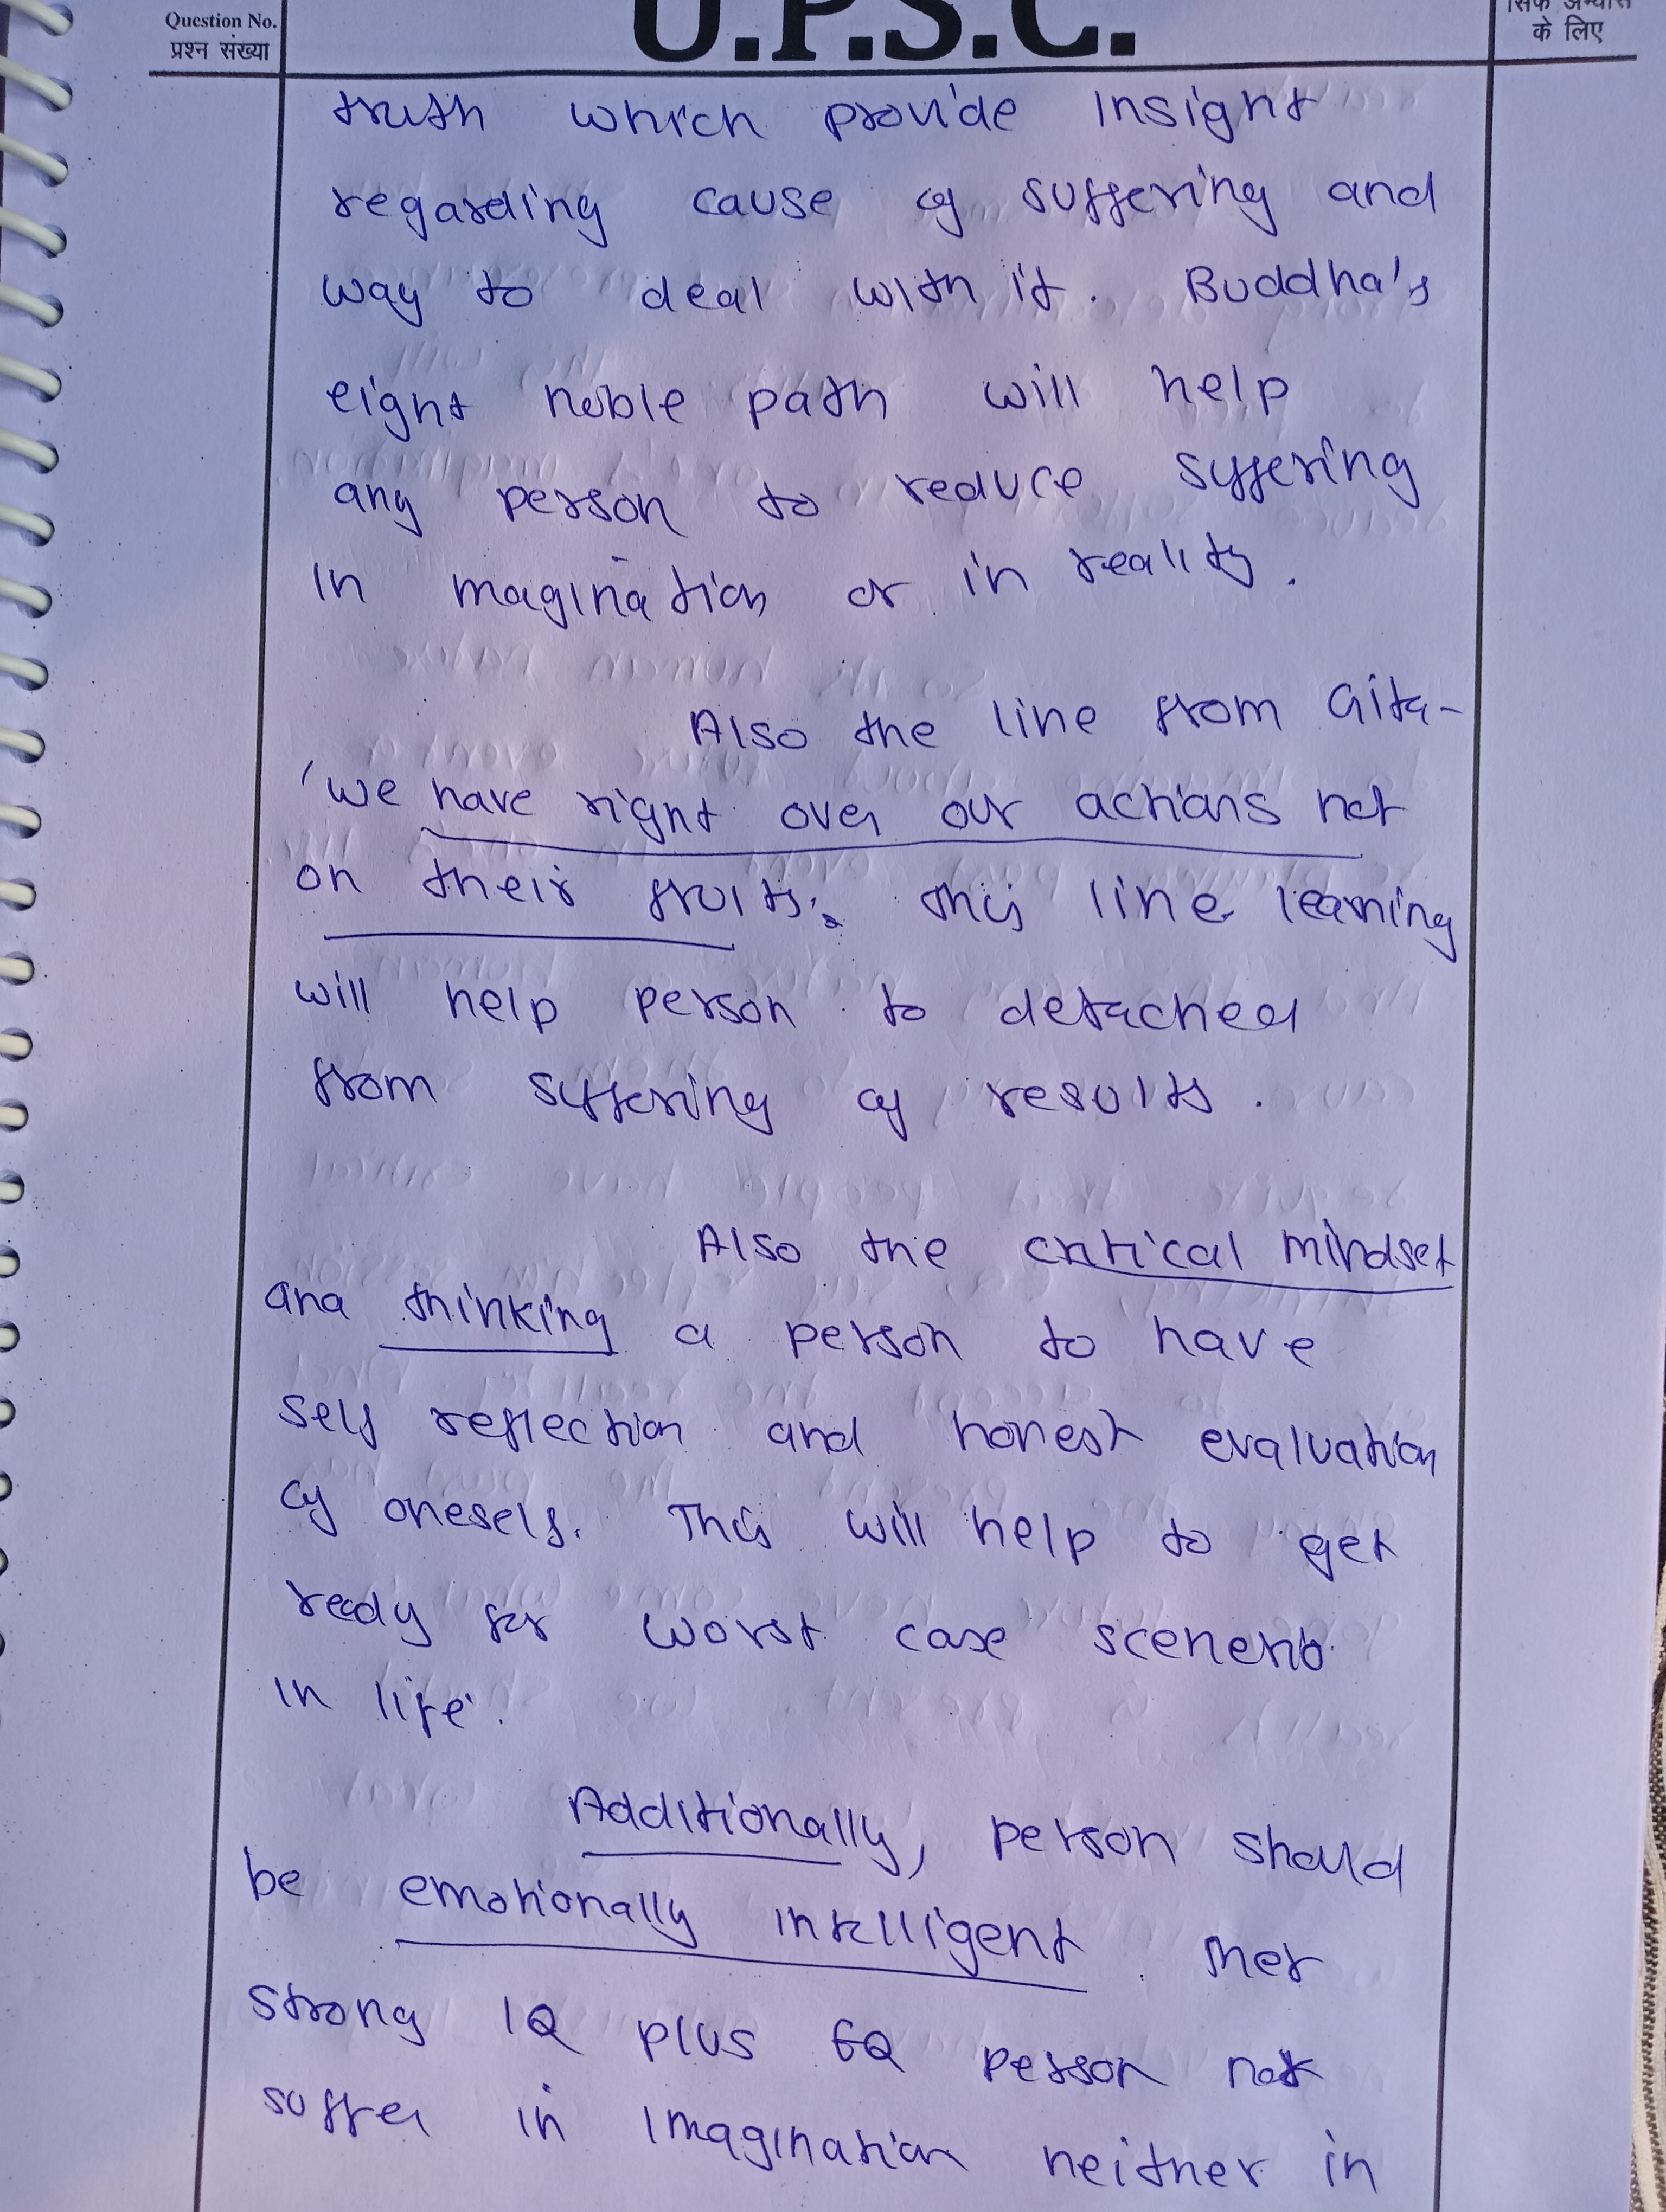 Question No.
प्रश्न संख्या
U.P.S.C.
सिर्फ अभ्यास
के लिए
truth which provide insight
regarding cause of suffering and
way to deal with it. Buddha's
eight noble path will help
any person to reduce suffering
in imagination or in reality.
Also the line from Gita-
'we have right over our actions not
on their fruits'. This line learning
will help person to detached
from suffering of results.
Also the critical mindset
and thinking a person to have
self reflection and honest evaluation
of oneself. This will help to get
ready for worst case scenerio
in life.
Additionally, person should
be emotionally intelligent.
strong IQ plus EQ person not
suffer in imagination neither in